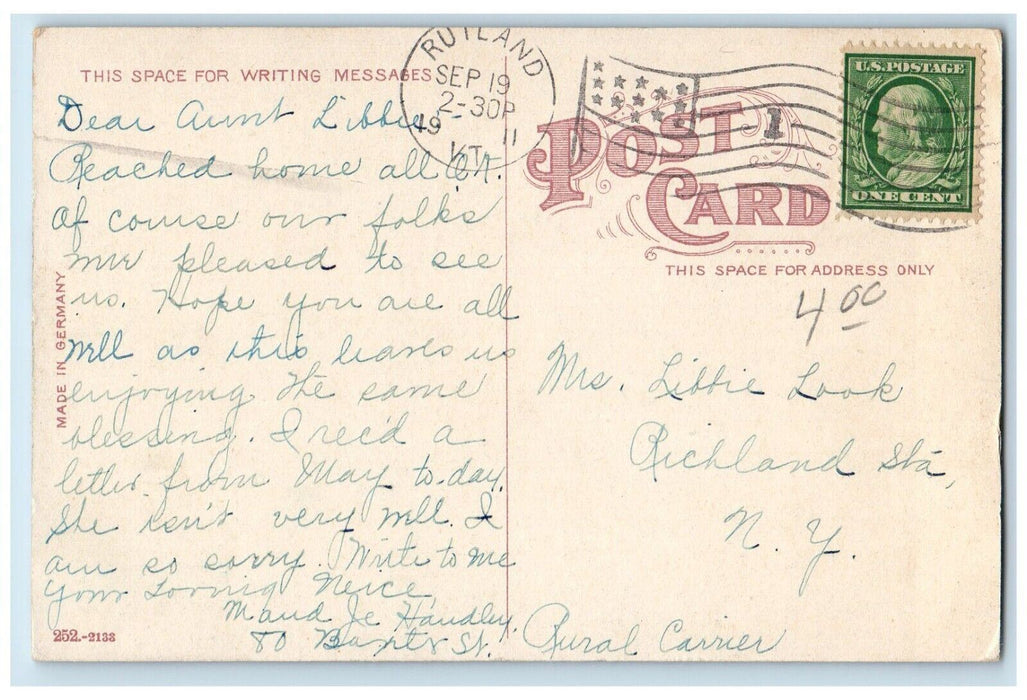 THIS SPACE FOR WRITING MESSAGES
Dear Aunt Libbie -
Reached home all O.K.
Of course our folks
were pleased to see
us. Hope you are all
well as this leaves us
enjoying the same
blessing. I rec'd a
letter from May to-day.
She isn't very well. I
am so sorry. Write to me
Your Loving Neice
Maud Handley
80 Baxter St.
MADE IN GERMANY
252.-2133
RUTLAND
SEP 19
2-30P
19 11
VT.
POST CARD
1
U.S. POSTAGE
ONE CENT
THIS SPACE FOR ADDRESS ONLY
4 00
Mrs. Libbie Look
Richland Sta,
N. Y.
Rural Carrier